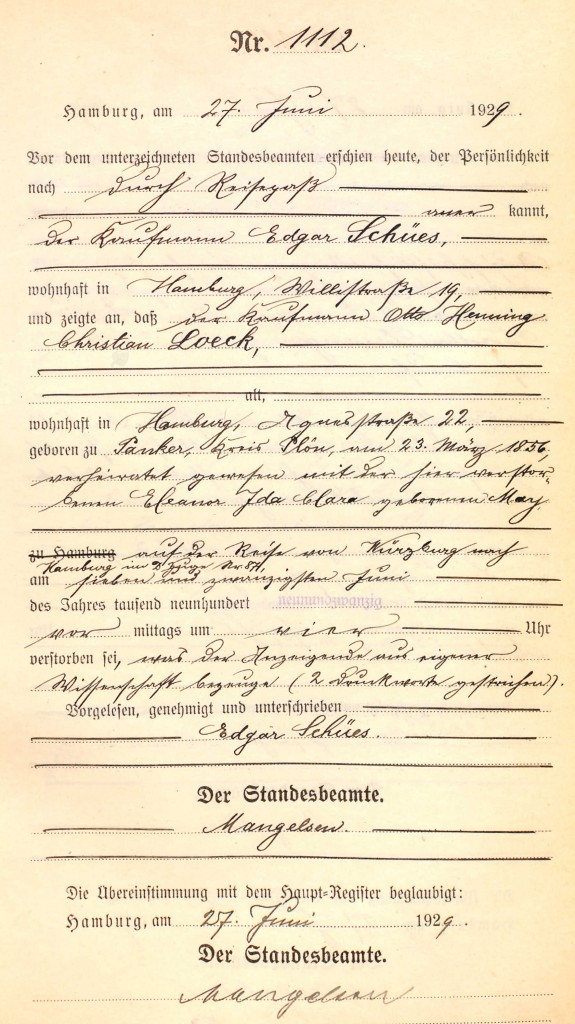 Nr. 1112.
Hamburg, am 27. Juni 1929.
Vor dem unterzeichneten Standesbeamten erschien heute, der Persönlichkeit
nach durch Reisepaß
aner kannt,
der Kaufmann Edgar Schües,
wohnhaft in Hamburg, Willistraße 19,
und zeigte an, daß der Kaufmann Otto Henning
Christian Loeck,
alt,
wohnhaft in Hamburg, Agnesstraße 22,
geboren zu Panker, Kreis Plön, am 23. März 1856,
verheiratet gewesen mit der hier verstor-
benen Eleanor Ida Clara geborenen May
zu Hamburg auf der Reise von Würzburg nach
Hamburg im D Zuge Nr 87,
am sieben und zwanzigsten Juni
des Jahres tausend neunhundert neunundzwanzig
vor mittags um vier Uhr
verstorben sei, was der Anzeigende aus eigener
Wissenschaft bezeuge (2 Druckworte gestrichen).
Vorgelesen, genehmigt und unterschrieben
Edgar Schües.
Der Standesbeamte.
Mangelsen.
Die Übereinstimmung mit dem Haupt-Register beglaubigt:
Hamburg, am 27. Juni 1929.
Der Standesbeamte.
Mangelsen